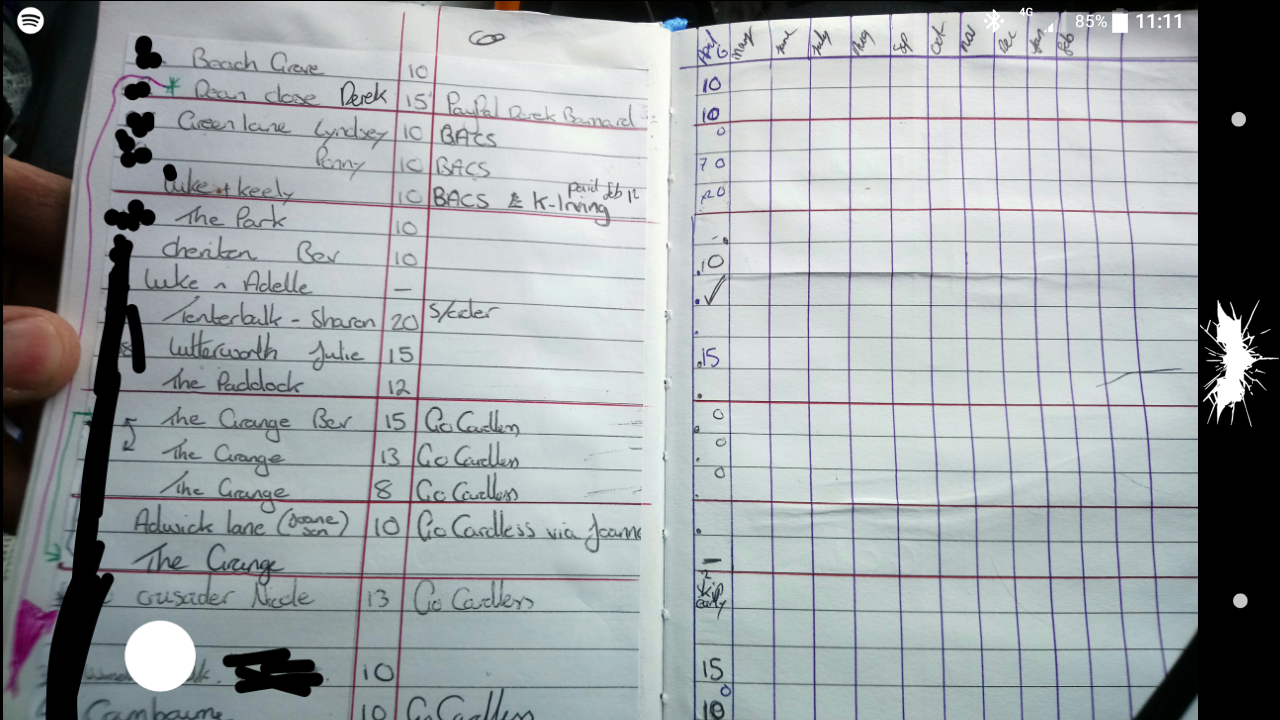 4G 85% 11:11
6
Beach Grove 10
Dean close Derek 15 PayPal Derek Barnard
Green lane Lyndsey 10 BACS
Penny 10 BACS
Luke + Keely 10 BACS & K-Irving paid feb 12
The Park 10
cheriton Bev 10
Luke n Adelle —
Tenterbalk - Sharon 20 S/order
Lutterworth Julie 15
The Paddock 12
The Grange Bev 15 Go Cardless
The Grange 13 Go Cardless
The Grange 8 Go Cardless
Adwick lane 10 Go Cardless via Joanne
The Grange
crusader Nicole 13 Go Cardless
10
10 Go Cardless
April 6 may June July Aug Sep Oct Nov Dec Jan Feb
10
10
0
70
20
-
10
✓
15
0
0
0
-
2
skip
early
15
0
10